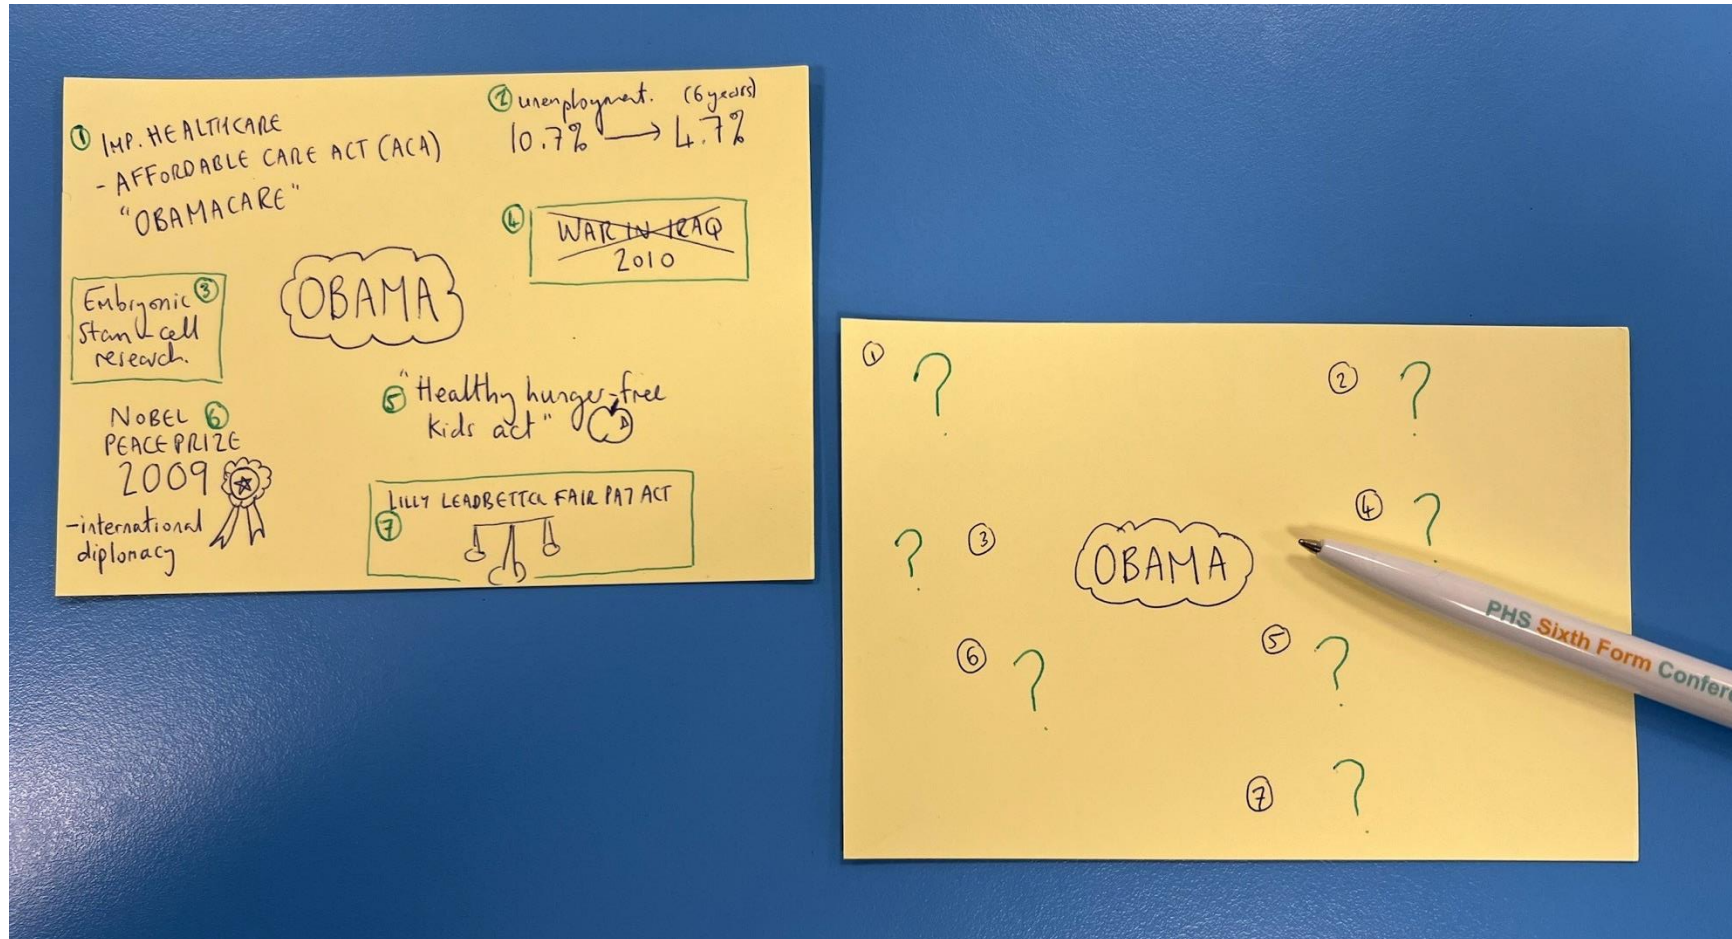 ① IMP. HEALTHCARE
- AFFORDABLE CARE ACT (ACA)
"OBAMACARE"
② unemployment. (6 years)
10.7% → 4.7%
④ WAR IN IRAQ
2010
Embryonic ③
Stam-cell
research.
OBAMA
⑤ "Healthy hunger-free
kids act"
NOBEL ⑥
PEACE PRIZE
2009
-international
diplomacy
LILLY LEADBETTER FAIR PAY ACT
⑦
① ?
② ?
④ ?
? ③
OBAMA
⑤ ?
⑥ ?
⑦ ?
PHS Sixth Form Confer